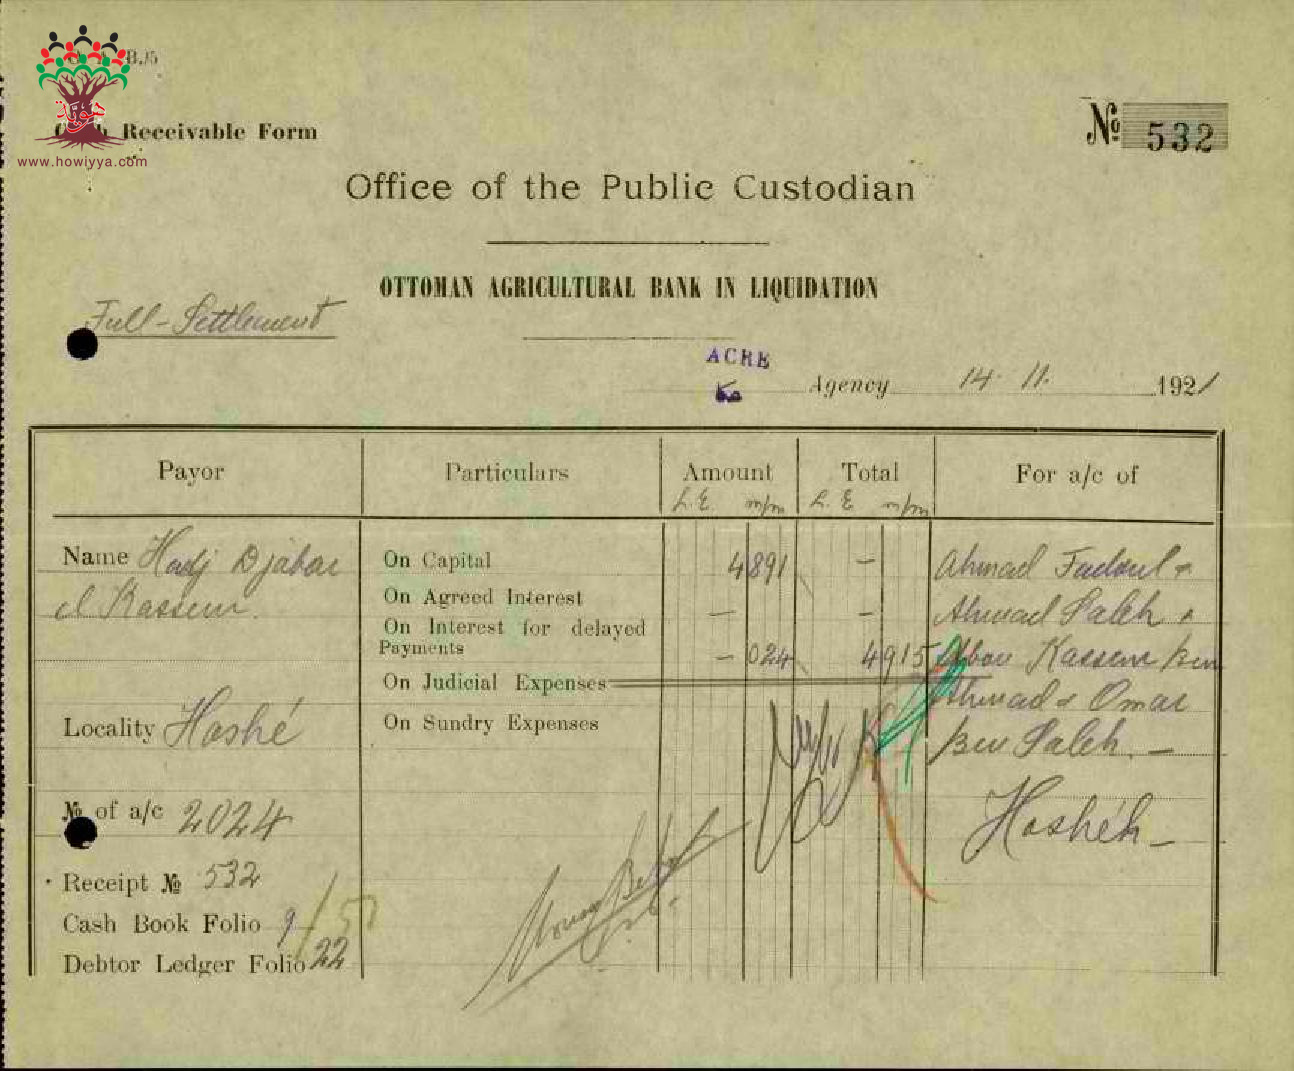 B.15
Receivable Form
www.howiyya.com
№ 532
Office of the Public Custodian
OTTOMAN AGRICULTURAL BANK IN LIQUIDATION
Full-Settlement
ACRE
عكا
Agency 14 11. 1921
Payor Particulars Amount Total For a/c of
L.E. m/m L.E m/m
Name Hadj Djabar
el Kassem.
Locality Hoshé
№ of a/c 2024
Receipt № 532
Cash Book Folio 9
Debtor Ledger Folio 22
On Capital 4 891 —
On Agreed Interest — —
On Interest for delayed
Payments — 024 4 915
On Judicial Expenses
On Sundry Expenses
Ahmad Fadoul &
Ahmad Saleh &
Abou Kassem Ben
Ahmad & Omar
Ben Saleh. —
Hoshéh —